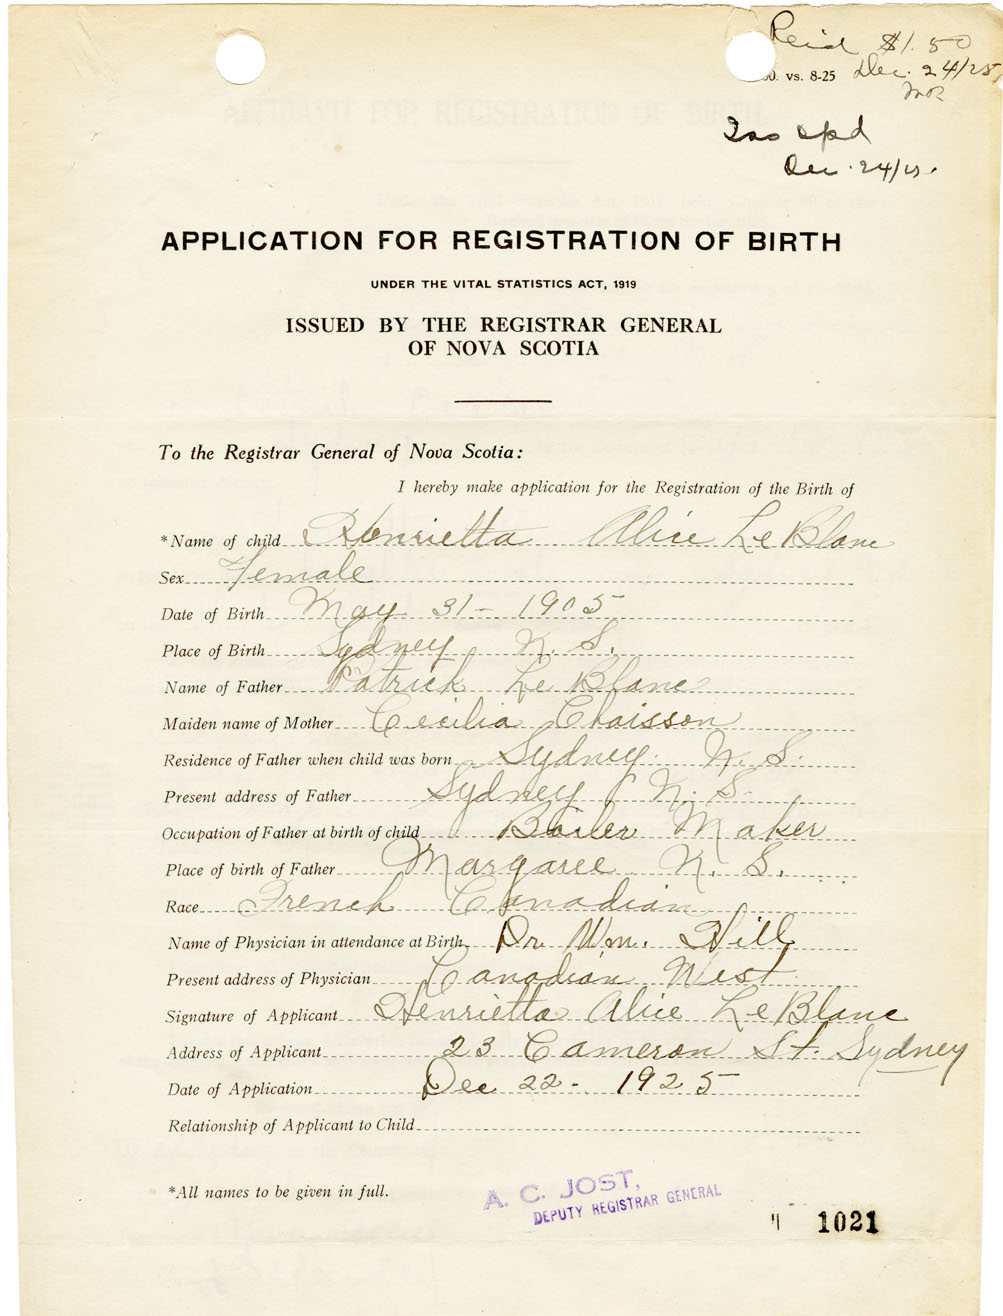 Reid $1.50
00. vs. 8-25 Dec. 24/25
Ino spd
Dec. 24/25.
APPLICATION FOR REGISTRATION OF BIRTH
UNDER THE VITAL STATISTICS ACT, 1919
ISSUED BY THE REGISTRAR GENERAL
OF NOVA SCOTIA
To the Registrar General of Nova Scotia:
I hereby make application for the Registration of the Birth of
*Name of child Henrietta Alice LeBlanc
Sex Female
Date of Birth May 31 - 1905
Place of Birth Sydney N. S.
Name of Father Patrick Le Blanc
Maiden name of Mother Cecilia Chaisson
Residence of Father when child was born Sydney N. S.
Present address of Father Sydney N. S.
Occupation of Father at birth of child Boiler Maker
Place of birth of Father Margaree N. S.
Race French Canadian
Name of Physician in attendance at Birth Dr. Wm. Hill
Present address of Physician Canadian West
Signature of Applicant Henrietta Alice LeBlanc
Address of Applicant 23 Cameron St. Sydney
Date of Application Dec 22 - 1925
Relationship of Applicant to Child
*All names to be given in full.
A. C. JOST,
DEPUTY REGISTRAR GENERAL
1021